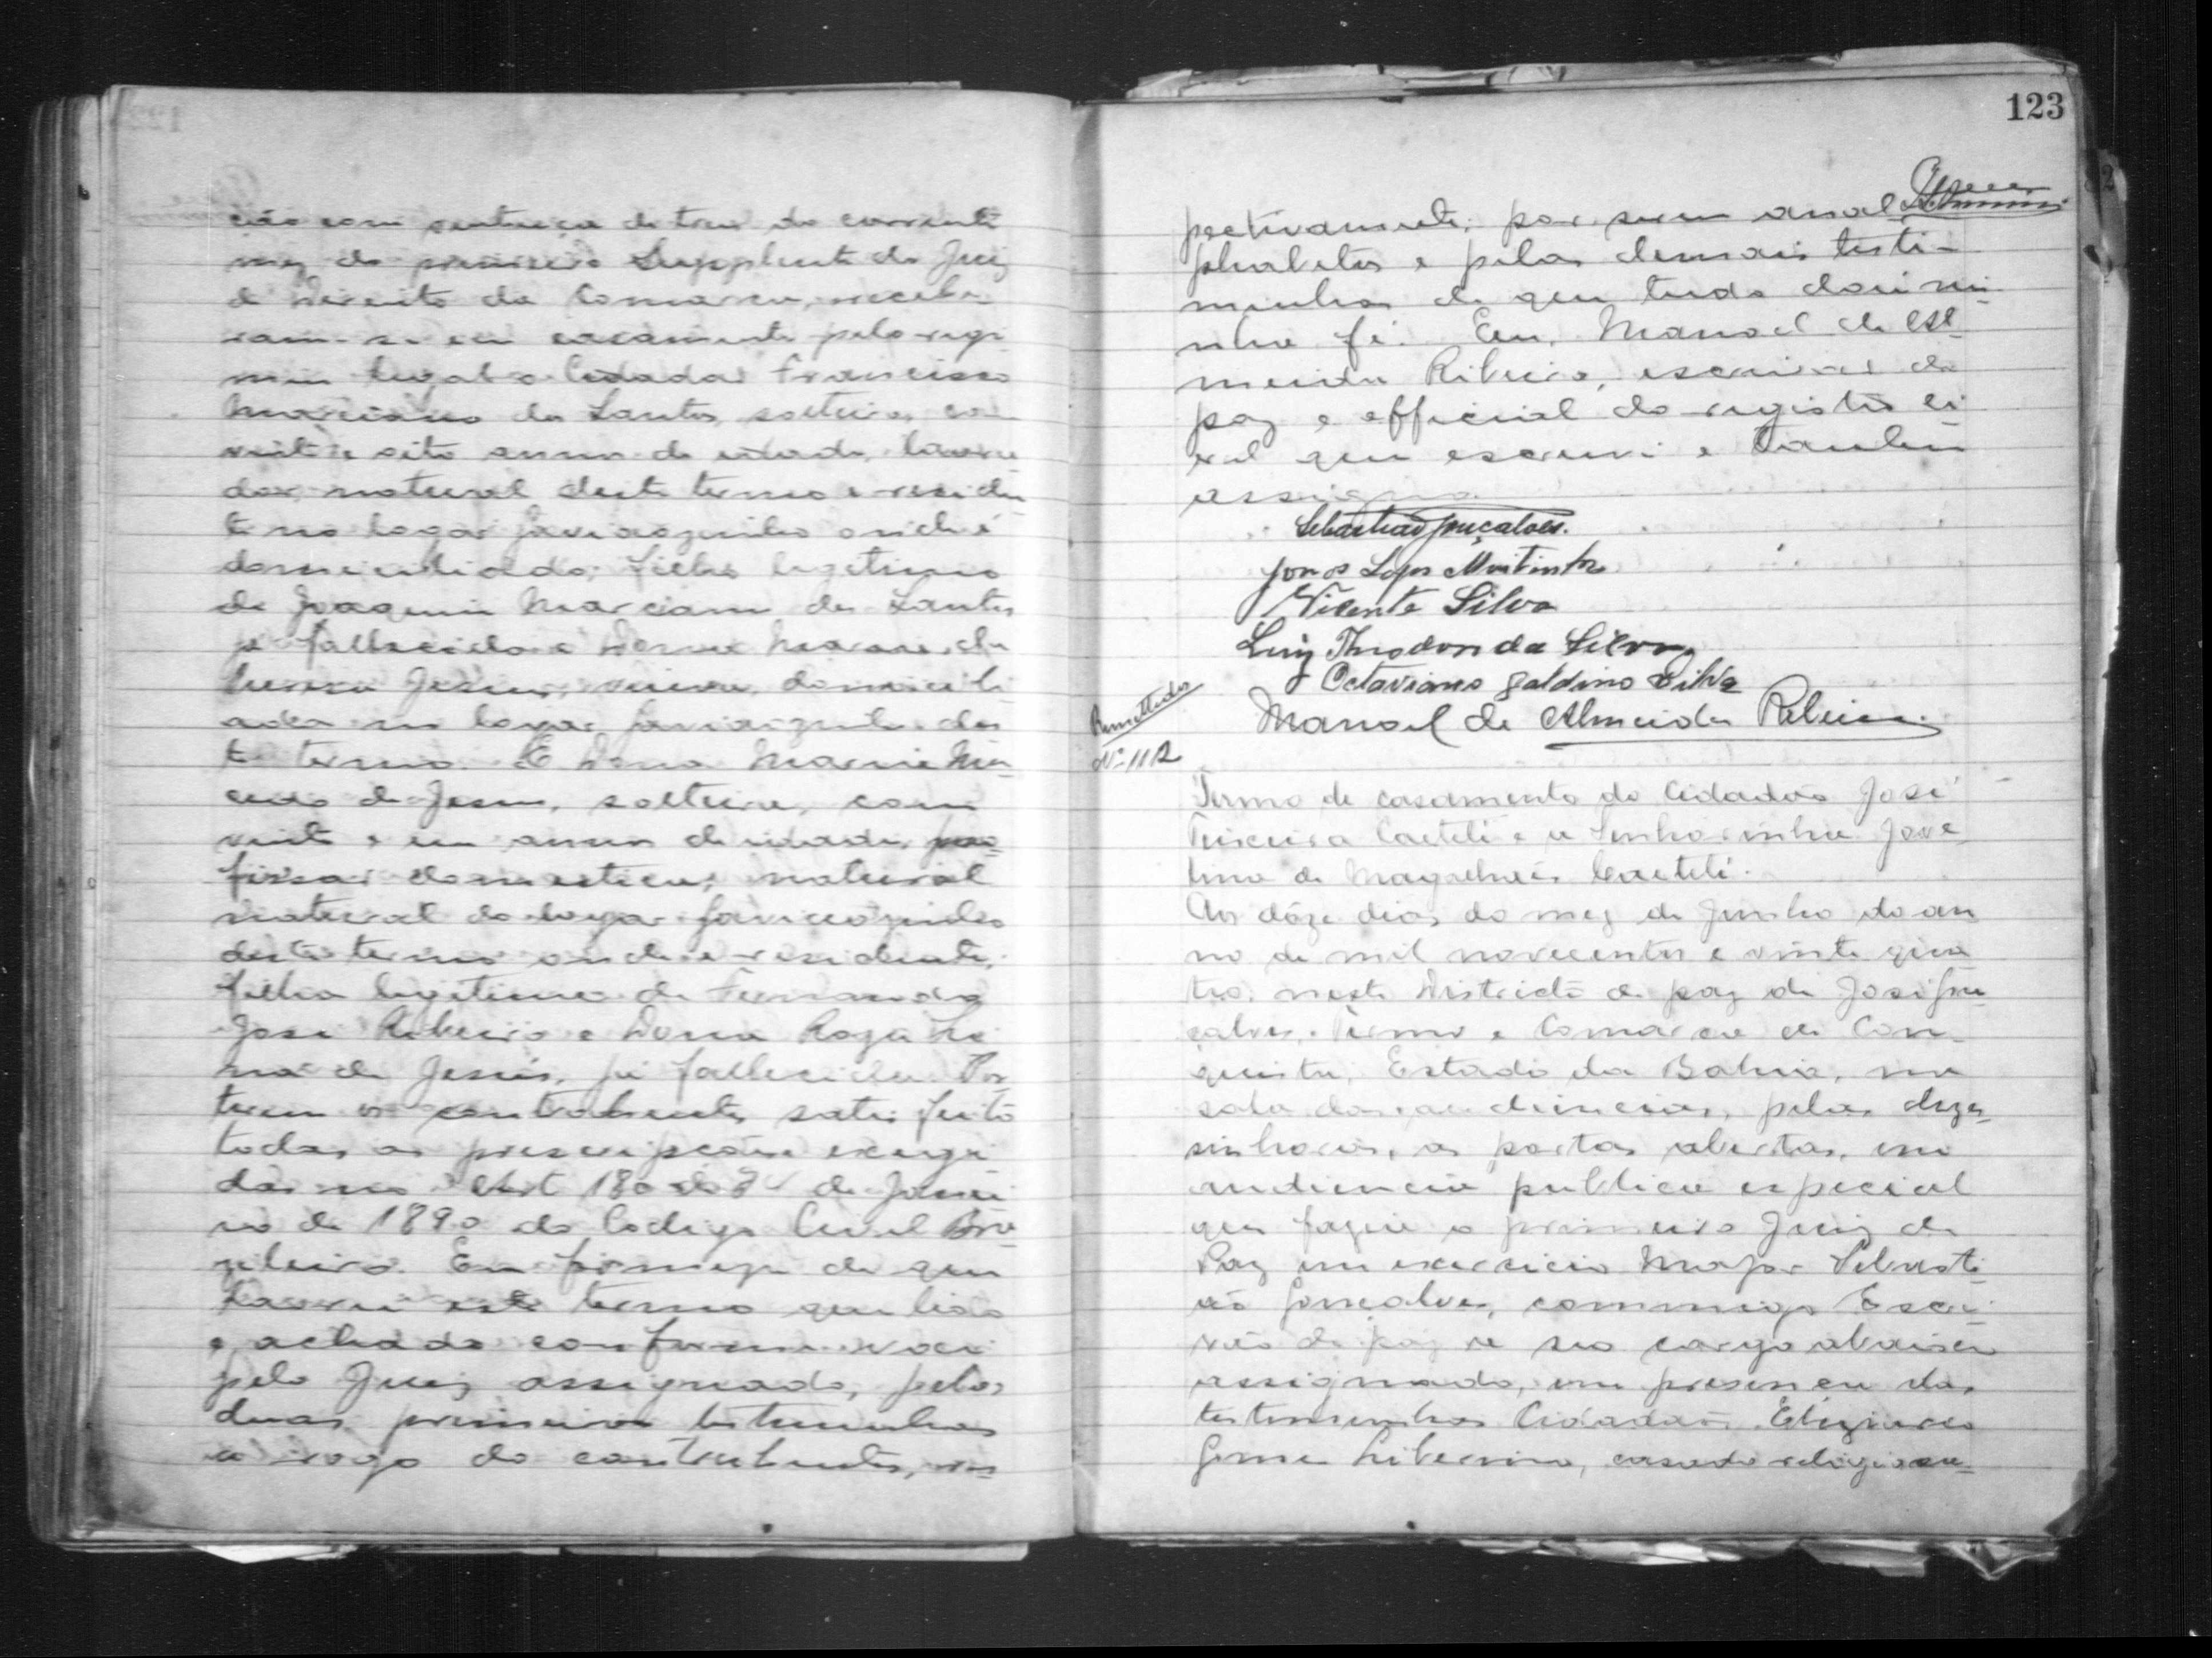 ção com sentença de trez do corrente
mez do primeiro Supplente do Juiz
de Direito da Comarca, recebe-
ram-se em casamento pelo regi
men legal o Cidadão Francisco
Marciano dos Santos, solteiro, com
vinte e oito annos de edade, lavra
dor, natural deste termo e residen
te no logar onde é
domiciliado; filho legitimo
de Joaquim Marciano dos Santos
já fallecido e Dona Maria
de Jesus, viuva, domicili
ada no logar des
te termo. E Dona Maria Ma
de Jesus, solteira, com
vinte e um annos de edade, pro
fissão domestica, natural
natural do logar
deste termo onde é residente,
filha legitima de Fernando
José Ribeiro e Dona Roza
de Jesus, já fallecida. Por
terem os contrahentes satisfeito
todas as prescripções exigi
das no Art 180 de Janei
ro de 1890 do Codigo Civil Bra
zileiro. Em firmeza do que
lavrei este termo que lido
e achado conforme vae
pelo Juiz assignado, pelas
duas primeiras testemunhas
a rogo do contrahentes, res
123
pectivamente, por serem anal
phabetos e pelas demais teste-
munhas do que tudo dou mi-
nha fé. Eu, Manoel de Al
meida Ribeiro, escrivão de
paz e official do registro ci
vil que escrevi e tambem
assigno.
Sebastião Gonçalves.
Jonas Lopes Moitinho
Vicente Silva
Luiz Theodoro da Silva
Octaviano Galdino Silva
Manoel de Almeida Ribeiro.
Remettido
Nº 112
Termo de casamento do Cidadão José
Teixeira Caeteté e a Senhorinha Jove
lina de Magalhães Caeteté.
Aos dôze dias do mez de Junho do an
no de mil novecentos e vinte qua
tro, neste Districto de paz de José Gon
çalves, Termo e Comarca de Con-
quista, Estado da Bahia, na
sala das audiencias, pelas deze
seis horas, as portas abertas, em
audiencia publica especial
que fazia o primeiro Juiz de
Paz em exercicio Major Sebasti
ão Gonçalves, commigo Escri
vão de paz de seo cargo abaixo
assignado, em presença das
testemunhas Cidadãos
Gomes Liberino, casado religiosa-